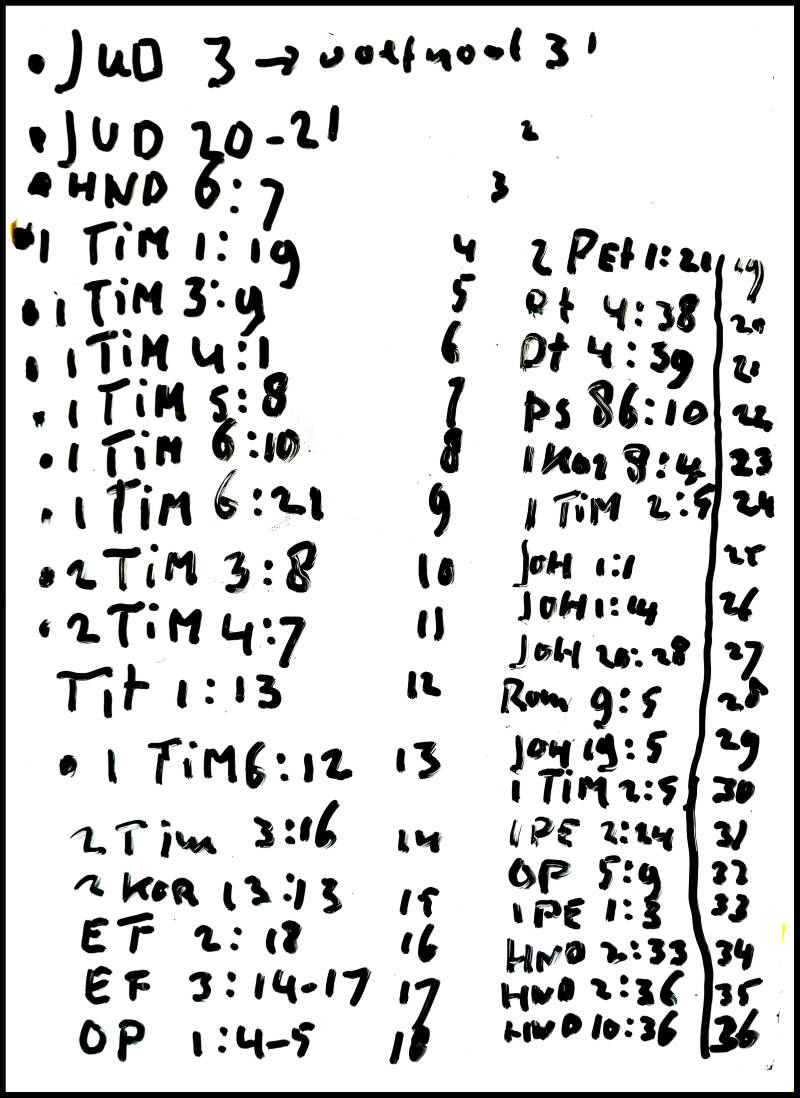 • JUD 3 → voetnoot 3 1
• JUD 20-21 2
• HND 6:7 3
• 1 TiM 1:19 4
• 1 TiM 3:9 5
• 1 TiM 4:1 6
• 1 TiM 5:8 7
• 1 TiM 6:10 8
• 1 TiM 6:21 9
• 2 TiM 3:8 10
• 2 TiM 4:7 11
Tit 1:13 12
• 1 TiM 6:12 13
2 Tim 3:16 14
2 KOR 13:13 15
EF 2:18 16
EF 3:14-17 17
OP 1:4-5 18
2 PEt 1:21 19
Dt 4:38 20
Dt 4:39 21
PS 86:10 22
1 KOR 8:4 23
1 TiM 2:5 24
JOH 1:1 25
JOH 1:14 26
JOH 20:28 27
Rom 9:5 28
JOH 19:5 29
1 TiM 2:5 30
1 PE 2:24 31
OP 5:9 32
1 PE 1:3 33
HND 2:33 34
HND 2:36 35
HND 10:36 36